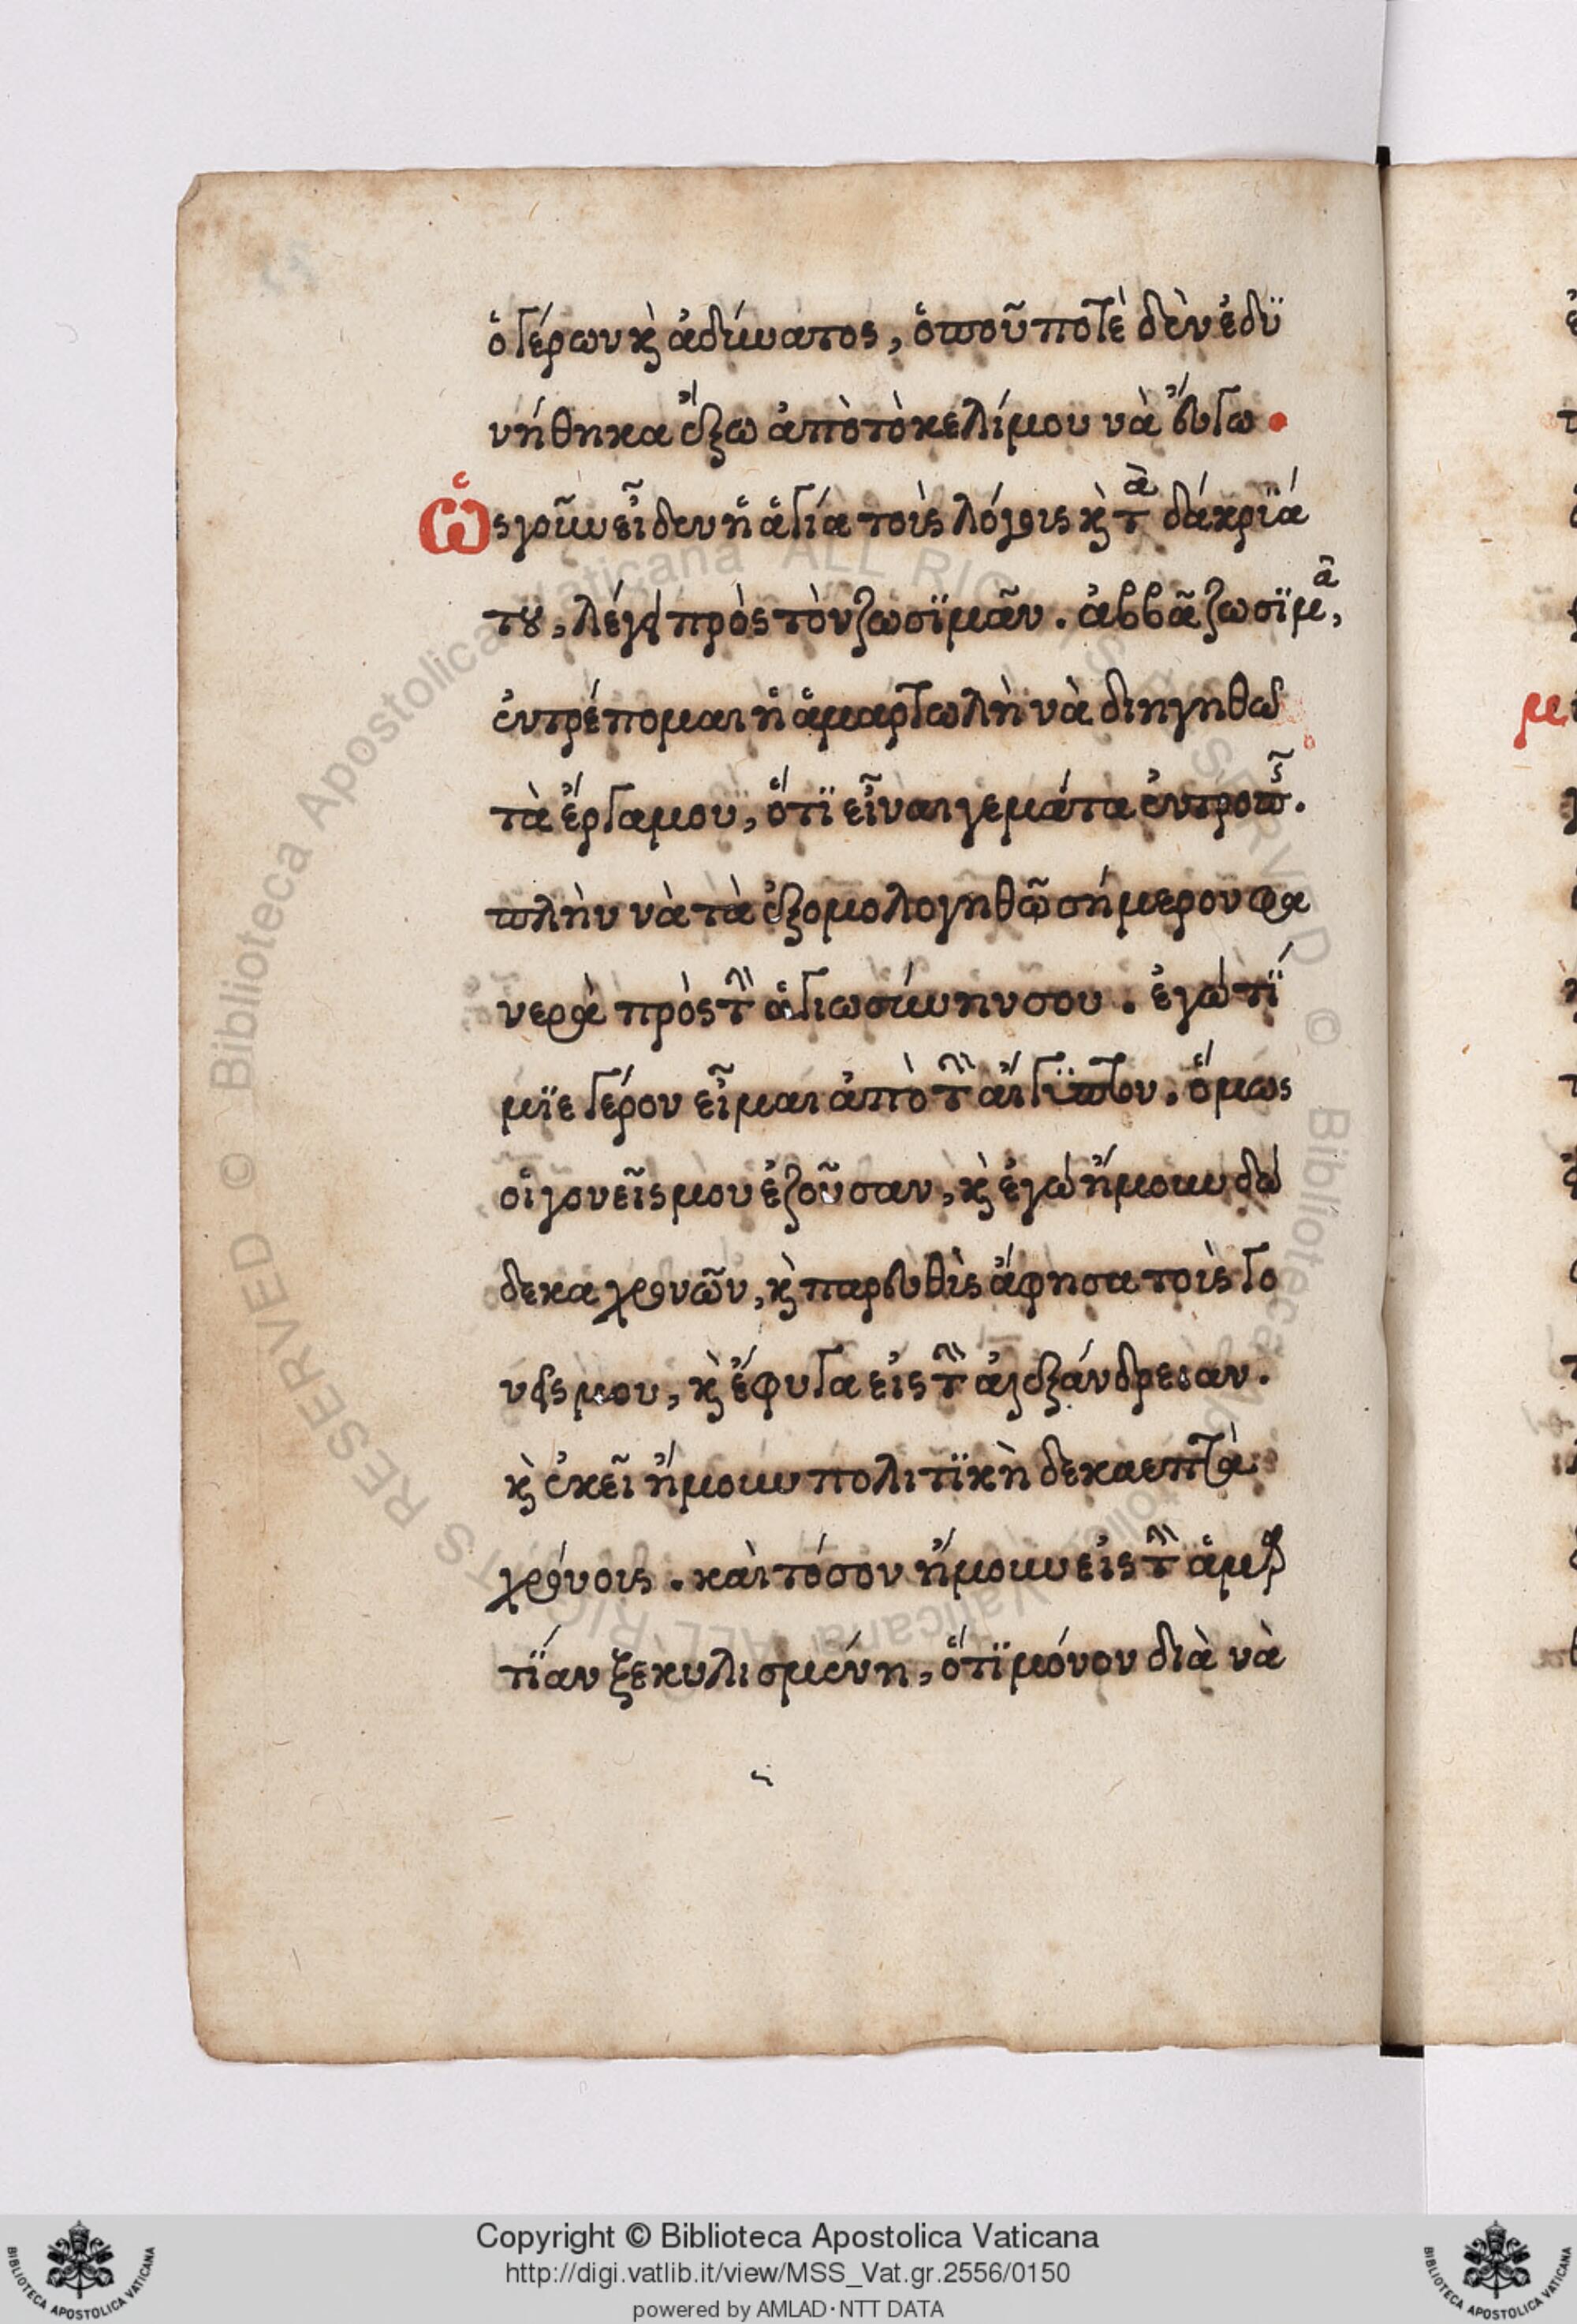 ὁ γέρων κ̀ ἀδύνατος, ὁποῦ ποτὲ δὲν ἐδϋ
νήθηκα ἔξω ἀπὸ τὸ κελίμου νὰ ἔυγω.
Ὡς γοῦν εἶδεν ἡ ἁγία τοὶς λόγοις κ̀ τὰ δάκρϊά
τȣ, λέγει πρὸς τὸν ζωσϊμᾶν. ἀββᾶ ζωσϊμᾶ,
ἐντρέπομαι ἡ ἁμαρτωλὴ νὰ διηγηθῶ
τὰ ἔργαμου, ὅτϊ εἶναι γεμάτα ἐντροπῆς.
πλὴν νὰ τὰ ἐξομολογηθῶ σήμερον φα
νερὰ πρὸς τὴν ἁγιωσύνην σου. ἐγὼ τί
μϊε γέρον εἶμαι ἀπὸ τὴν ἄιγϋπτον. ὅμως
οἱ γονεῖς μου ἐζοῦσαν, κ̀ ἐγὼ ἤμουν δώ
δεκα χρονῶν, κ̀ παρευθὶς ἄφησα τοὶς γο
νεις μου, κ̀ ἔφυγα εἰς τὴν ἀλεξάνδρειαν.
κ̀ ἐκεῖ ἤμουν πολιτϊκὴ δεκαεπτὰ
χρόνοις. καὶ τόσον ἤμουν εἰς τὴν ἁμαρ
τΐαν ξεκυλισμένη, ὅτϊ μόνον διὰ νὰ
Copyright © Biblioteca Apostolica Vaticana
http://digi.vatlib.it/view/MSS_Vat.gr.2556/0150
powered by AMLAD·NTT DATA